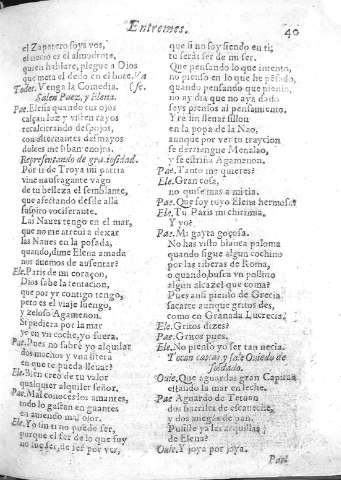 Entremes.
40
el Zapatero soys vos,
el necio es el almodrote,
quien hablare, plegue a Dios
que meta el dedo en el bote. Va
Todos. Venga la Comedia. (se.
Salen Paez, y Elena.
Pae. Elena quando tus ojos
calçan luz y visten rayos
recalcitrando despojos,
con alternantes desmayos
dulces me siruan enojos.
Representando de gra. sosdad.
Por ti de Troya mi patria
vine naufragante vago
de tu belleza el semblante,
que afectando desde allà
suspiro vociferante.
Las Naues tengo en el mar,
que no me atreui a dexar
las Naues en la posada,
quando, dime Elena amada
nos auemos de ausentar?
Ele. Paris de mi coraçon,
Dios sabe la tentacion,
que por yr contigo tengo,
pero es el viaje luengo,
y zeloso Agamenon.
Si pudiera por la mar
ye en vn coche, yo fuera.
Pae. Pues no sabrè yo alquilar
dos machos y vna litera
en que te pueda lleuar?
Ele. Bien creo de tu valor
qualquier alquiler señor.
Pae. Mal conoces los amantes,
todo lo gastan en guantes
en auiendo mal olor.
Ele. Yo sin ti no puedo ser,
porque el ser de lo que soy
no sue ser, de ser por vos,
que si no soy siendo en ti;
tu seràs ser de mi ser.
Que pensando lo que intento,
no pienso en lo que he pesado,
quando pensando que pienso,
no ay dia que no aya dado
seys piensos al pensamiento.
Y re sin lleuar sillon
en la popa de la Nao,
aunque por ver tu traycion
se derriengue Menalao,
y se estriña Agamenon.
Pae. Tanto me quieres?
Ele. Gran cosa,
no quise mas a mi tia.
Pae. Que soy tuyo Elena hermosa?
Ele. Tu Paris mi chirimia,
Y yo?
Pae. Mi gayta goçosa.
No has visto blanca paloma
quando sigue algun cochino
por las riberas de Roma,
o quando busca vn pollino
algun alcazel que coma?
Pues ansi pienso de Grecia
sacarte aunque grites des,
como en Granada Lucrecia.
Ele. Gritos dizes?
Pae. Gritos pues.
Ele. No pienso yo ser tan necia.
Tocan caxas, y sale Ouiedo de
soldado.
Ouie. Que aguardas gran Capitan
estando la mar en leche.
Pae. Aguardo de Tetuan
dos barriles de escaueche,
y dos anegas de pan.
Pusiste ya las arquillas
de Elena?
Ouie. Y joya por joya.
Pari